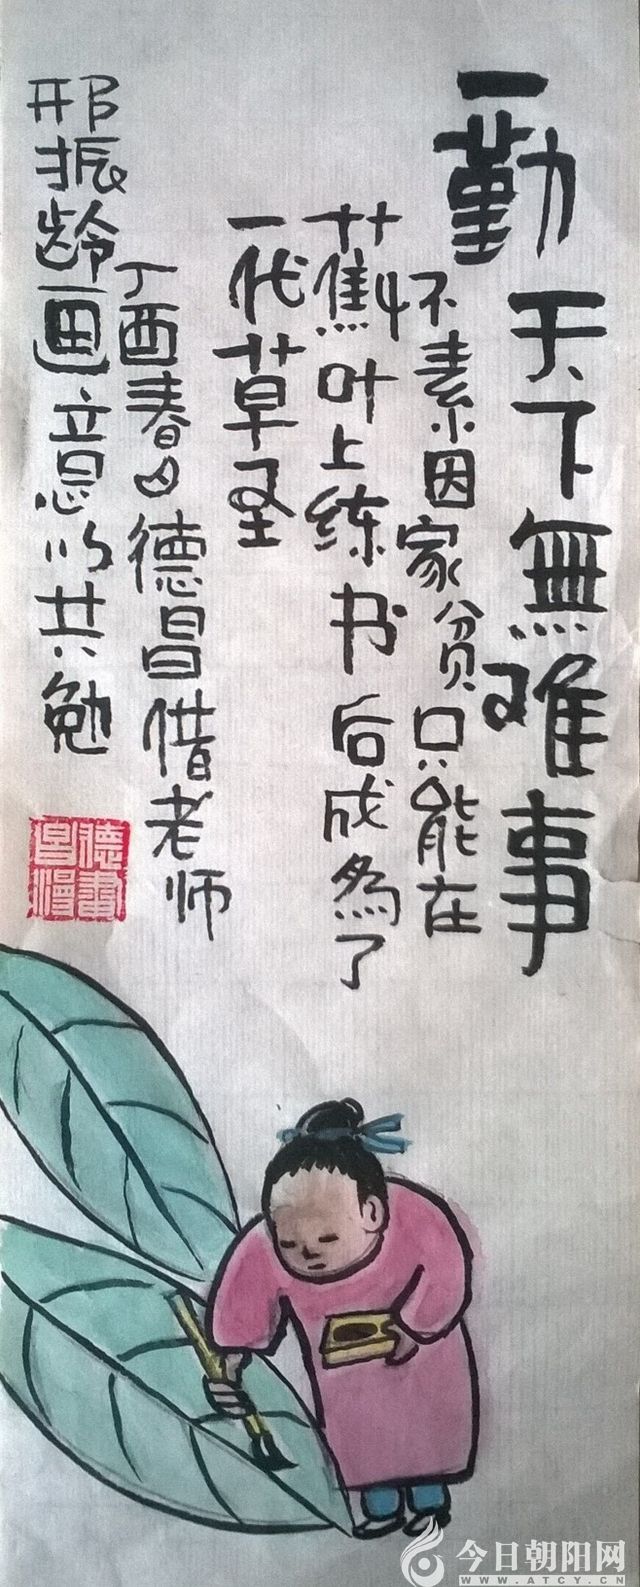 一勤天下無难事
怀素因家贫只能在
蕉叶上练书后成为了
一代草圣
丁酉春日德昌借老师
邢振龄画意以共勉
德昌漫画
今日朝阳网
WWW.ATCY.CN